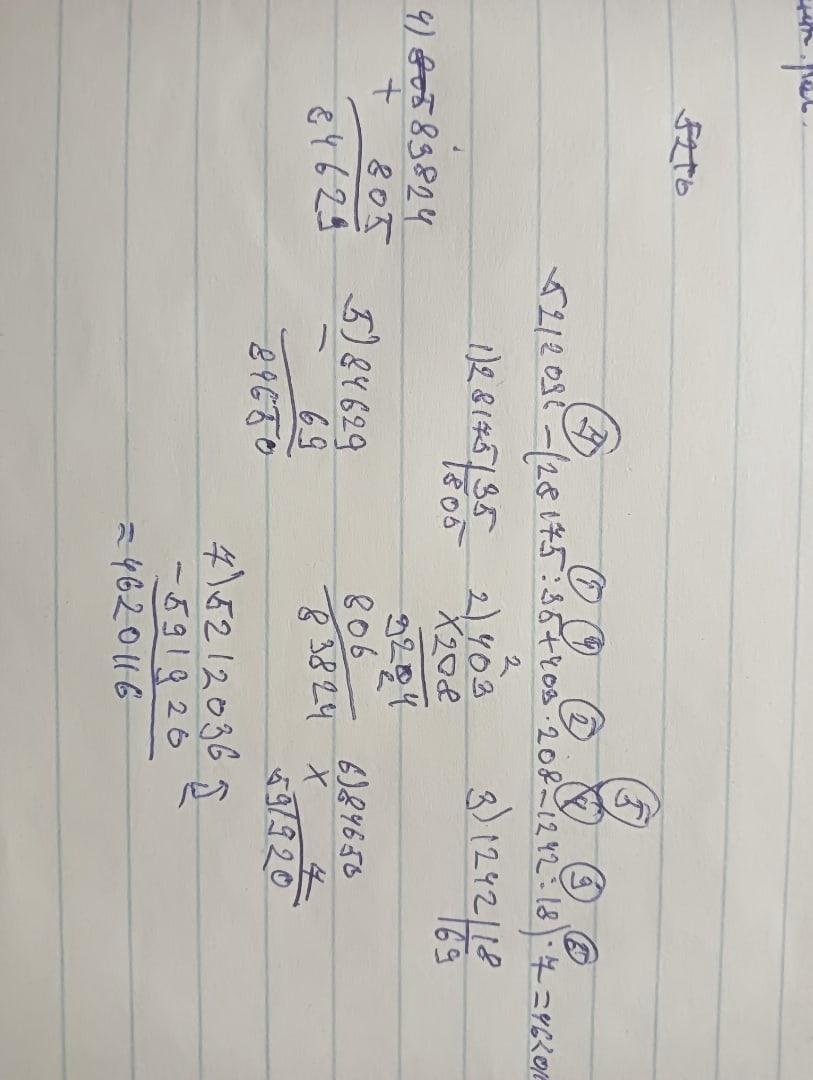 5212036 - (28175 : 35 + 403 · 208 - 1242 : 18) · 7 =
1) 28175 | 35
805
2) 403
× 208
3224
806
83824
3) 1242 | 18
69
4) 83824
+ 805
84629
5) 84629
- 69
84560
6) 84650
× 7
591920
7) 5212036
- 591920
= 4620116